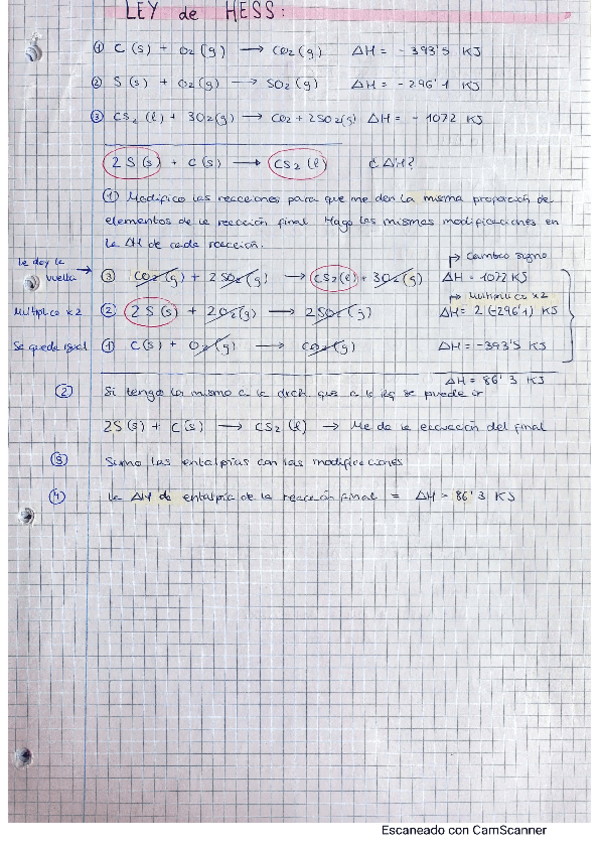 LEY de HESS:
① C (s) + O2 (g) → CO2 (g) ΔH = - 393'5 KJ
② S (s) + O2 (g) → SO2 (g) ΔH = - 296'1 KJ
③ CS2 (l) + 3O2 (g) → CO2 + 2SO2 (g) ΔH = - 1072 KJ
2 S (s) + C (s) → CS2 (l) ¿ ΔH?
① Modifico las reacciones para que me den la misma proporción de
elementos de la reacción final. Hago las mismas modificaciones en
la ΔH de cada reacción.
le doy la vuelta → ③ CO2 (g) + 2SO2 (g) → CS2 (l) + 3O2 (g) ΔH = 1072 KJ → Cambio signo
Multiplico x2 ② 2 S (s) + 2O2 (g) → 2SO2 (g) ΔH = 2 (-296'1) KJ → Multiplico x2
Se queda igual ① C (s) + O2 (g) → CO2 (g) ΔH = -393'5 KJ
ΔH = 86'3 KJ
② Si tengo lo mismo a la drch que a la izq se puede ir
2S (s) + C (s) → CS2 (l) → Me da la ecuación del final
③ Sumo las entalpías con las modificaciones
④ la ΔH de entalpía de la reacción final = ΔH = 86'3 KJ
Escaneado con CamScanner